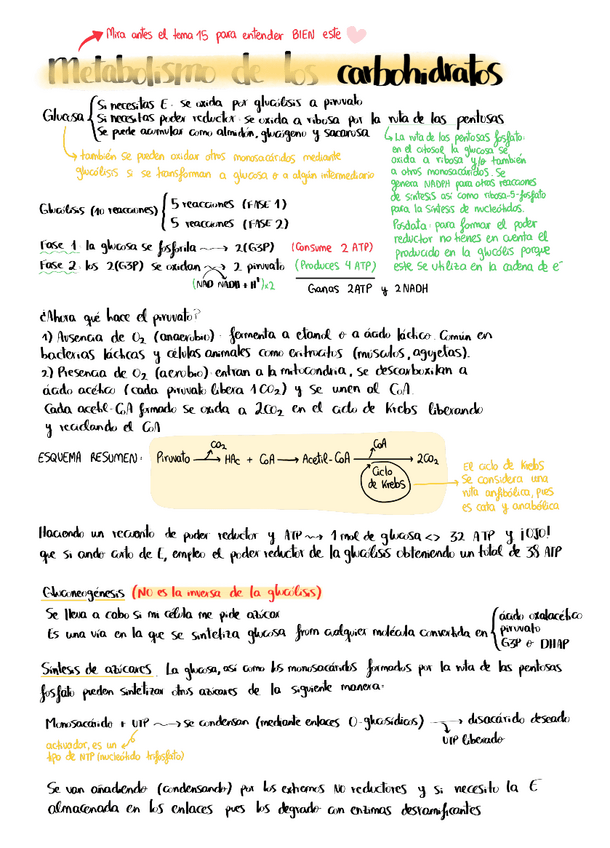 Mira antes el tema 15 para entender BIEN este
Metabolismo de los carbohidratos
Glucosa
Si necesitas E. se oxida por glucólisis a piruvato
Si necesitas poder reductor. se oxida a ribosa por la ruta de las pentosas
Se puede acumular como almidón, glucógeno y sacarosa
también se pueden oxidar otros monosacáridos mediante
glucólisis si se transforman a glucosa o a algún intermediario
La ruta de las pentosas fosfato:
en el citosol la glucosa se
oxida a ribosa y/o también
a otros monosacáridos. Se
genera NADPH para otras reacciones
de síntesis así como ribosa-5-fosfato
para la síntesis de nucleótidos.
Posdata: para formar el poder
reductor no tienes en cuenta el
producido en la glucólisis porque
este se utiliza en la cadena de e⁻
Glucólisis (10 reacciones)
5 reacciones (FASE 1)
5 reacciones (FASE 2)
Fase 1: la glucosa se fosforila → 2(G3P) (Consume 2 ATP)
Fase 2: los 2(G3P) se oxidan → 2 piruvato (Produces 4 ATP)
(NAD NADH + H⁺)x2 Ganas 2ATP y 2NADH
¿Ahora qué hace el piruvato?
1) Ausencia de O₂ (anaerobio): fermenta a etanol o a ácido láctico. Común en
bacterias lácticas y células animales como eritrocitos (músculos, agujetas).
2) Presencia de O₂ (aerobio): entran a la mitocondria, se descarboxilan a
ácido acético (cada piruvato libera 1CO₂) y se unen al CoA.
Cada acetil-CoA formado se oxida a 2CO₂ en el ciclo de Krebs liberando
y reciclando el CoA
ESQUEMA RESUMEN: Piruvato → HAc + CoA → Acetil-CoA → 2CO₂
CO₂
CoA
Ciclo
de Krebs
El ciclo de Krebs
se considera una
ruta anfibólica, pues
es cata y anabólica
Haciendo un recuento de poder reductor y ATP → 1 mol de glucosa <> 32 ATP y ¡OJO!
que si ando corto de E, empleo el poder reductor de la glucólisis obteniendo un total de 38 ATP
Gluconeogénesis (NO es la inversa de la glucólisis)
Se lleva a cabo si mi célula me pide azúcar
Es una vía en la que se sintetiza glucosa from cualquier molécula convertida en
ácido oxalacético
piruvato
G3P o DHAP
Síntesis de azúcares. La glucosa, así como los monosacáridos formados por la ruta de las pentosas
fosfato pueden sintetizar otros azúcares de la siguiente manera:
Monosacárido + UTP → se condensan (mediante enlaces O-glucosídicos) → disacárido deseado
UTP liberado
activador, es un
tipo de NTP (nucleótido trifosfato)
Se van añadiendo (condensando) por los extremos NO reductores y si necesito la E
almacenada en los enlaces pues los degrado con enzimas desramificantes